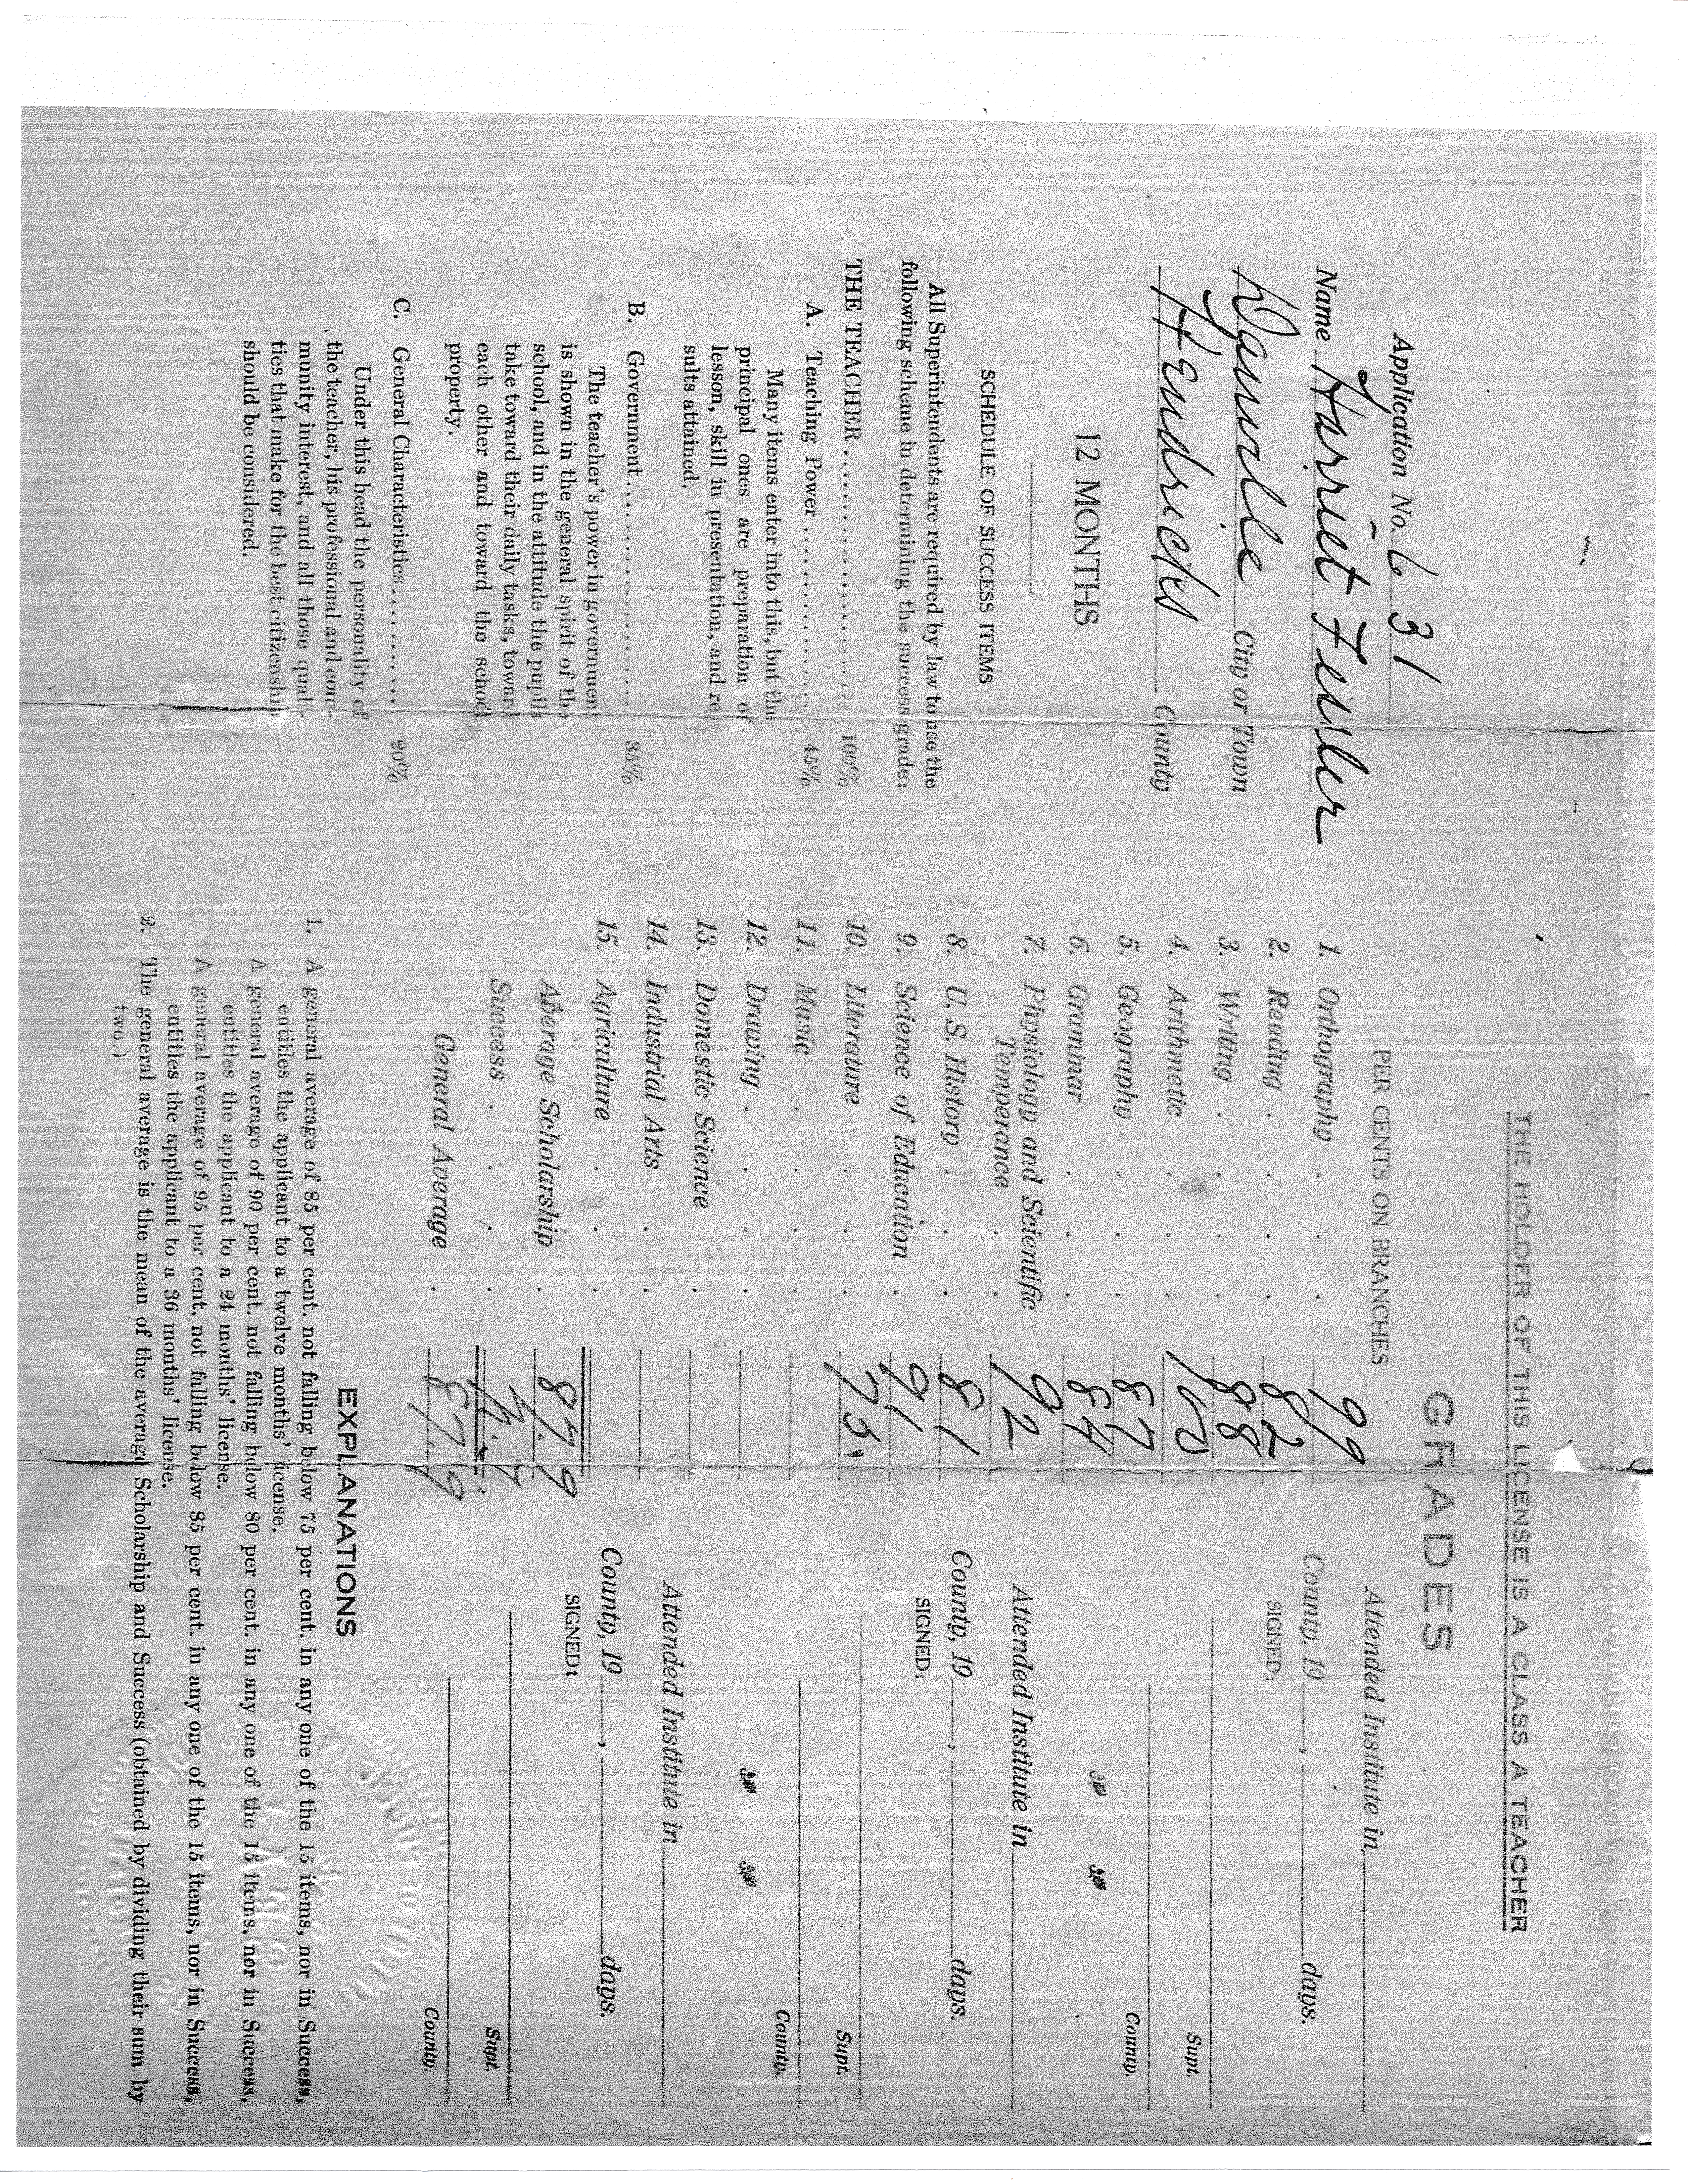 THE HOLDER OF THIS LICENSE IS A CLASS A TEACHER
GRADES
Application No. 631
Name Harriet Fessler
Danville City or Town
Hendricks County
12 MONTHS
SCHEDULE OF SUCCESS ITEMS
All Superintendents are required by law to use the
following scheme in determining the success grade:
THE TEACHER 100%
A. Teaching Power 45%
Many items enter into this, but the
principal ones are preparation of
lesson, skill in presentation, and re
sults attained.
B. Government 35%
The teacher's power in government
is shown in the general spirit of the
school, and in the attitude the pupils
take toward their daily tasks, toward
each other and toward the school
property.
C. General Characteristics 20%
Under this head the personality of
the teacher, his professional and com-
munity interest, and all those quali-
ties that make for the best citizenship
should be considered.
PER CENTS ON BRANCHES
1. Orthography 99
2. Reading 82
3. Writing 88
4. Arithmetic 100
5. Geography 87
6. Grammar 84
7. Physiology and Scientific
Temperance 92
8. U.S. History 81
9. Science of Education 91
10. Literature 75
11. Music
12. Drawing
13. Domestic Science
14. Industrial Arts
15. Agriculture
Average Scholarship 87.9
Success
General Average 87.9
Attended Institute in
County, 19 , days.
SIGNED:
Supt.
County.
Attended Institute in
County, 19 , days.
SIGNED:
Supt.
County.
Attended Institute in
County, 19 , days.
SIGNED:
Supt.
County.
EXPLANATIONS
1. A general average of 85 per cent. not falling below 75 per cent. in any one of the 15 items, nor in Success,
entitles the applicant to a twelve months' license.
A general average of 90 per cent. not falling below 80 per cent. in any one of the 15 items, nor in Success,
entitles the applicant to a 24 months' license.
A general average of 95 per cent. not falling below 85 per cent. in any one of the 15 items, nor in Success,
entitles the applicant to a 36 months' license.
2. The general average is the mean of the average Scholarship and Success (obtained by dividing their sum by
two.)